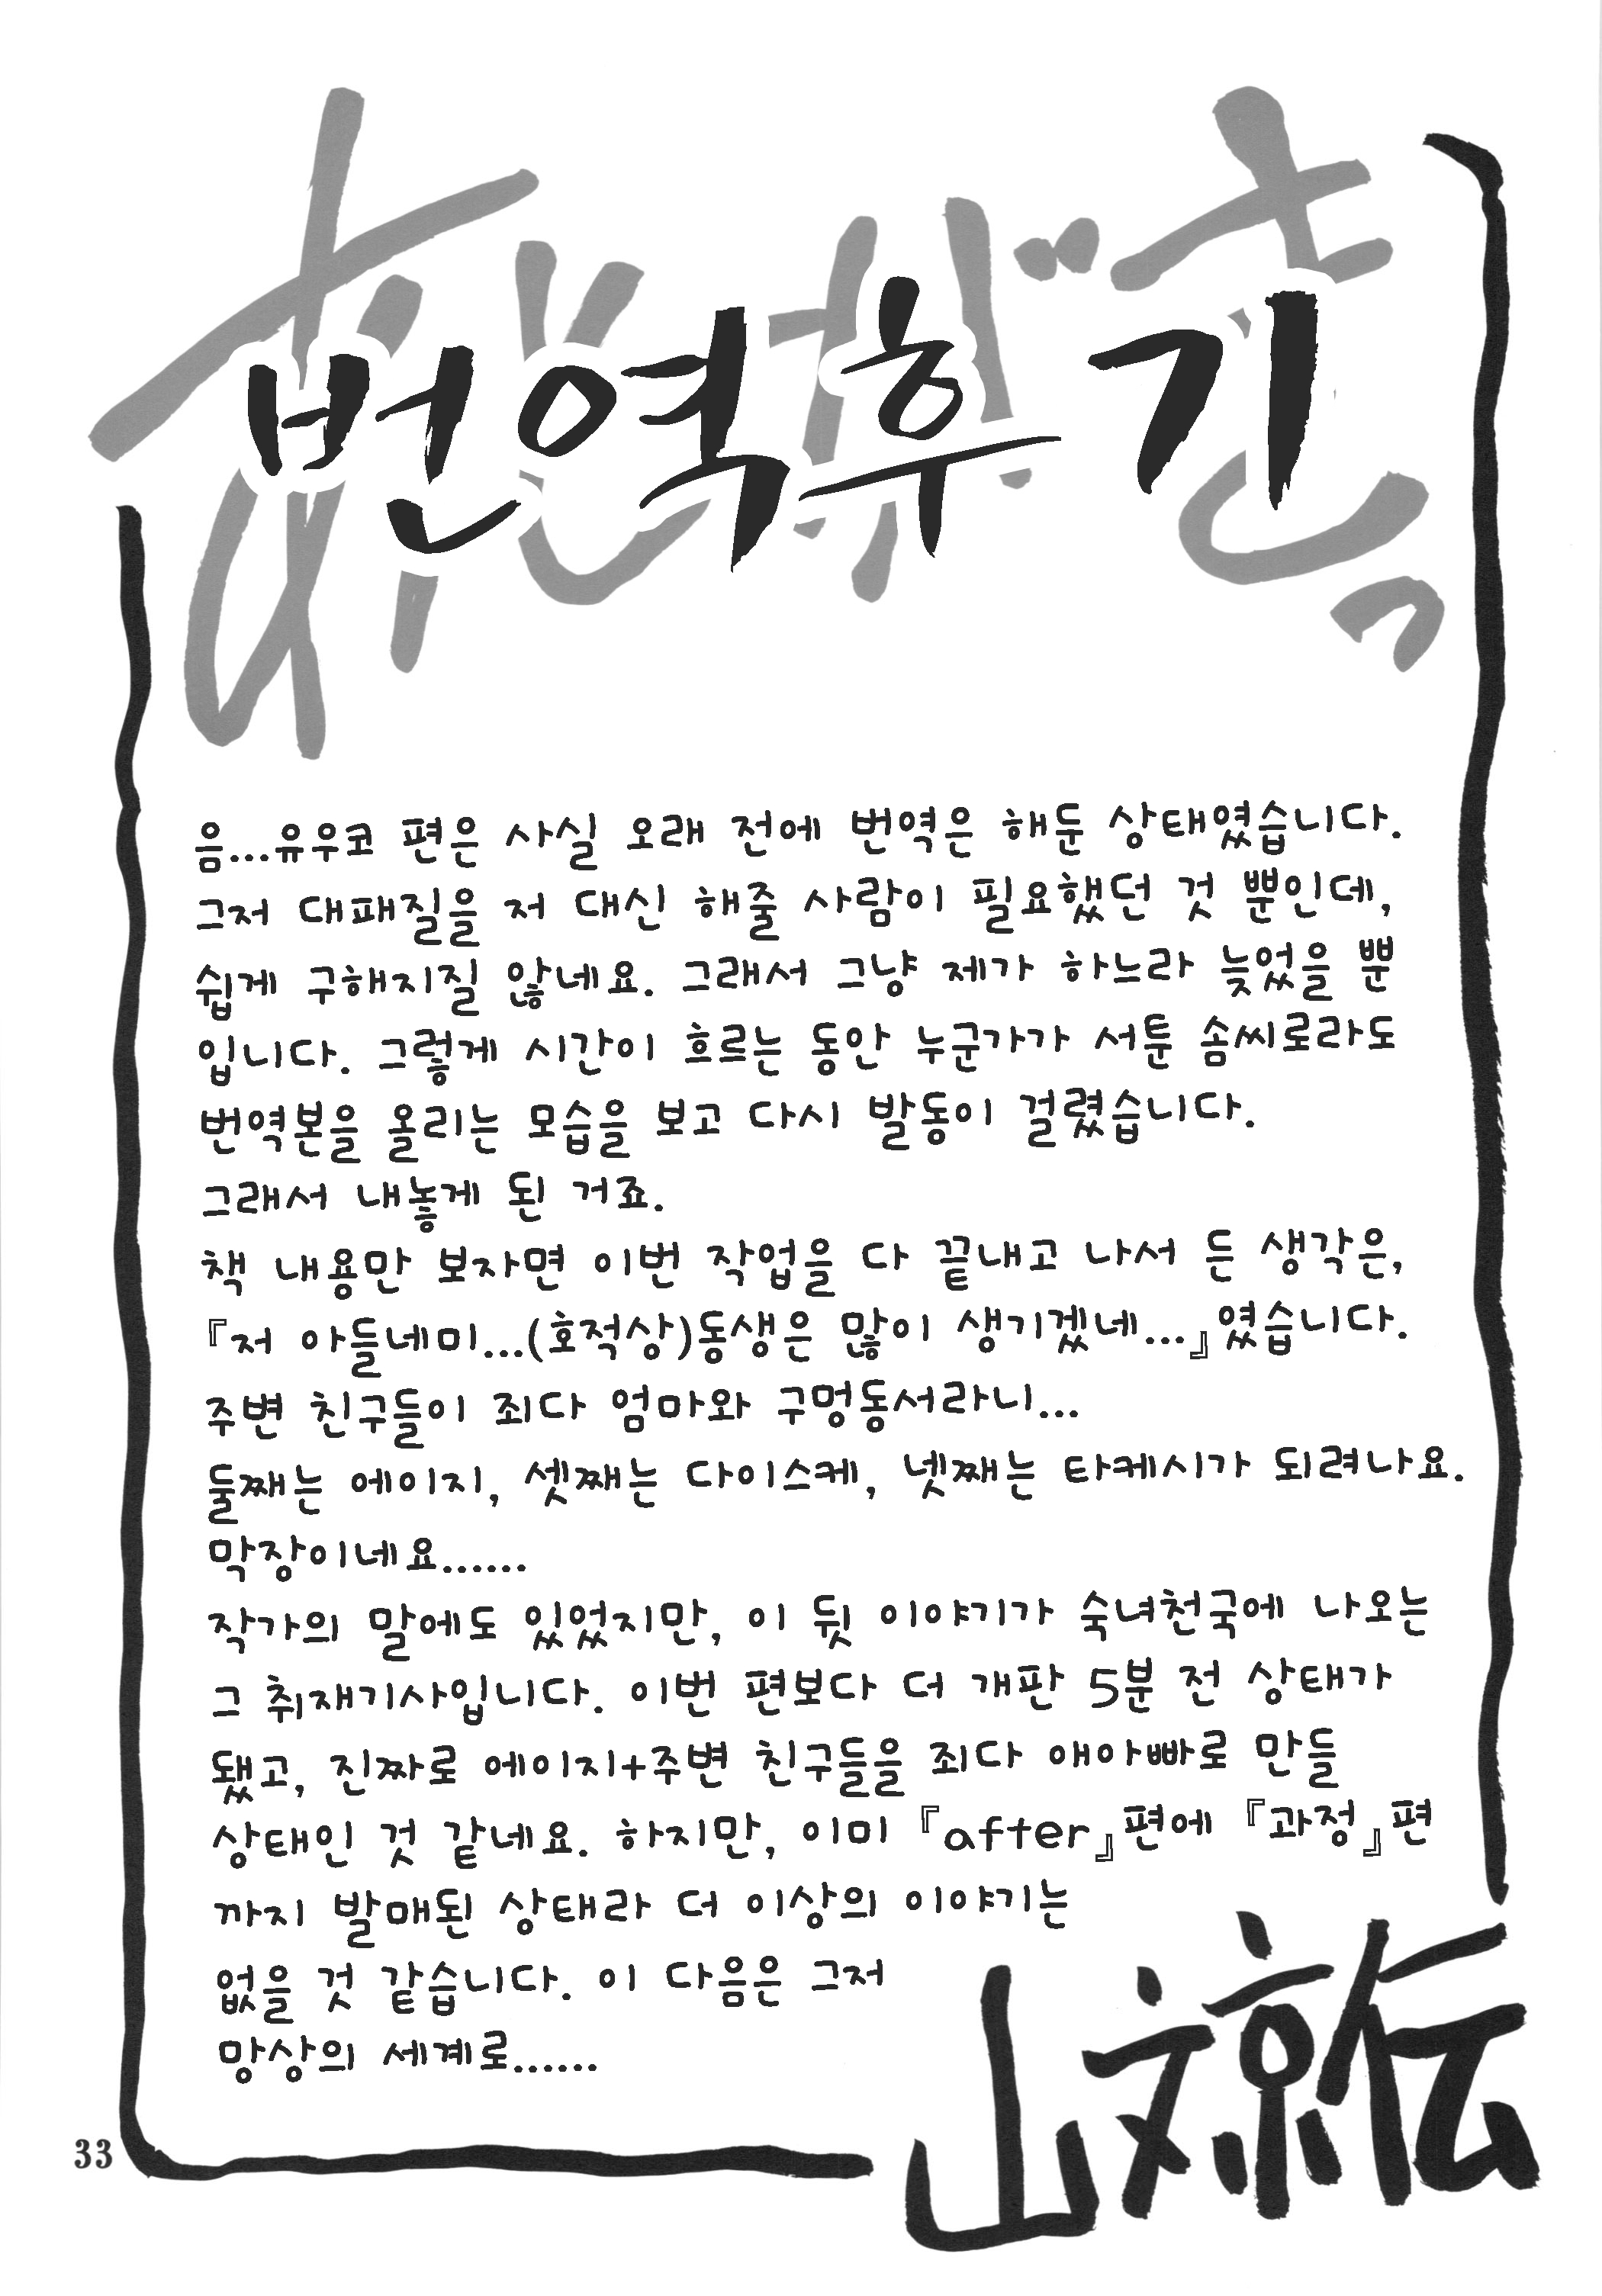 あとがき。
번역후기
음...유우코 편은 사실 오래 전에 번역은 해둔 상태였습니다.
그저 대패질을 저 대신 해줄 사람이 필요했던 것 뿐인데,
쉽게 구해지질 않네요. 그래서 그냥 제가 하느라 늦었을 뿐
입니다. 그렇게 시간이 흐르는 동안 누군가가 서툰 솜씨로라도
번역본을 올리는 모습을 보고 다시 발동이 걸렸습니다.
그래서 내놓게 된 거죠.
책 내용만 보자면 이번 작업을 다 끝내고 나서 든 생각은,
『저 아들네미...(호적상)동생은 많이 생기겠네...』였습니다.
주변 친구들이 죄다 엄마와 구멍동서라니...
둘째는 에이지, 셋째는 다이스케, 넷째는 타케시가 되려나요.
막장이네요......
작가의 말에도 있었지만, 이 뒷 이야기가 숙녀천국에 나오는
그 취재기사입니다. 이번 편보다 더 개판 5분 전 상태가
됐고, 진짜로 에이지+주변 친구들을 죄다 애아빠로 만들
상태인 것 같네요. 하지만, 이미 『after』편에 『과정』편
까지 발매된 상태라 더 이상의 이야기는
없을 것 같습니다. 이 다음은 그저
망상의 세계로......
山文京伝
33